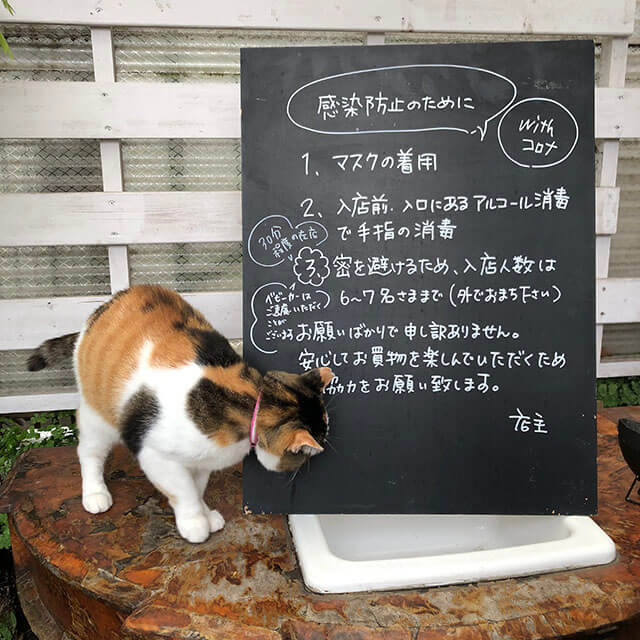 感染防止のために
with
コロナ
1、マスクの着用
2、入店前、入口にあるアルコール消毒
で手指の消毒
30分
程度の在店
3、密を避けるため、入店人数は
6〜7名さままで（外でおまち下さい）
ベビーカーは
ご遠慮いただく
ことが
ございます
お願いばかりで申し訳ありません。
安心してお買物を楽しんでいただくため
協力をお願い致します。
店主